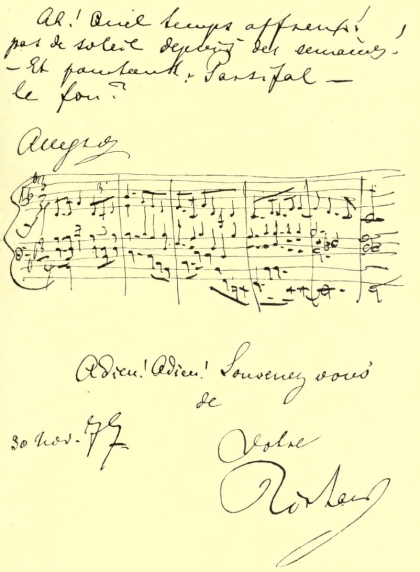 Ah! Quel temps affreux!
pas de soleil depuis des semaines!
- Et pourtant. Parsifal -
le fou?
Allegro
Adieu! Adieu! Souvenez vous
de
30 Nov. 77.
Votre